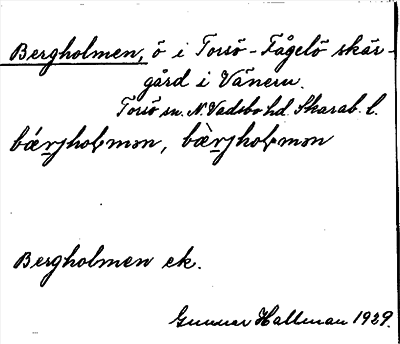 Bergholmen, ö i Torsö-Fågelö skär-
gård i Vänern.
Torsö sn. N. Vadsbo hd. Skarab. l.
bǽrjholmən, bæ̀rjholmən
Bergholmen ek.
Gunnar Hallman 1929.